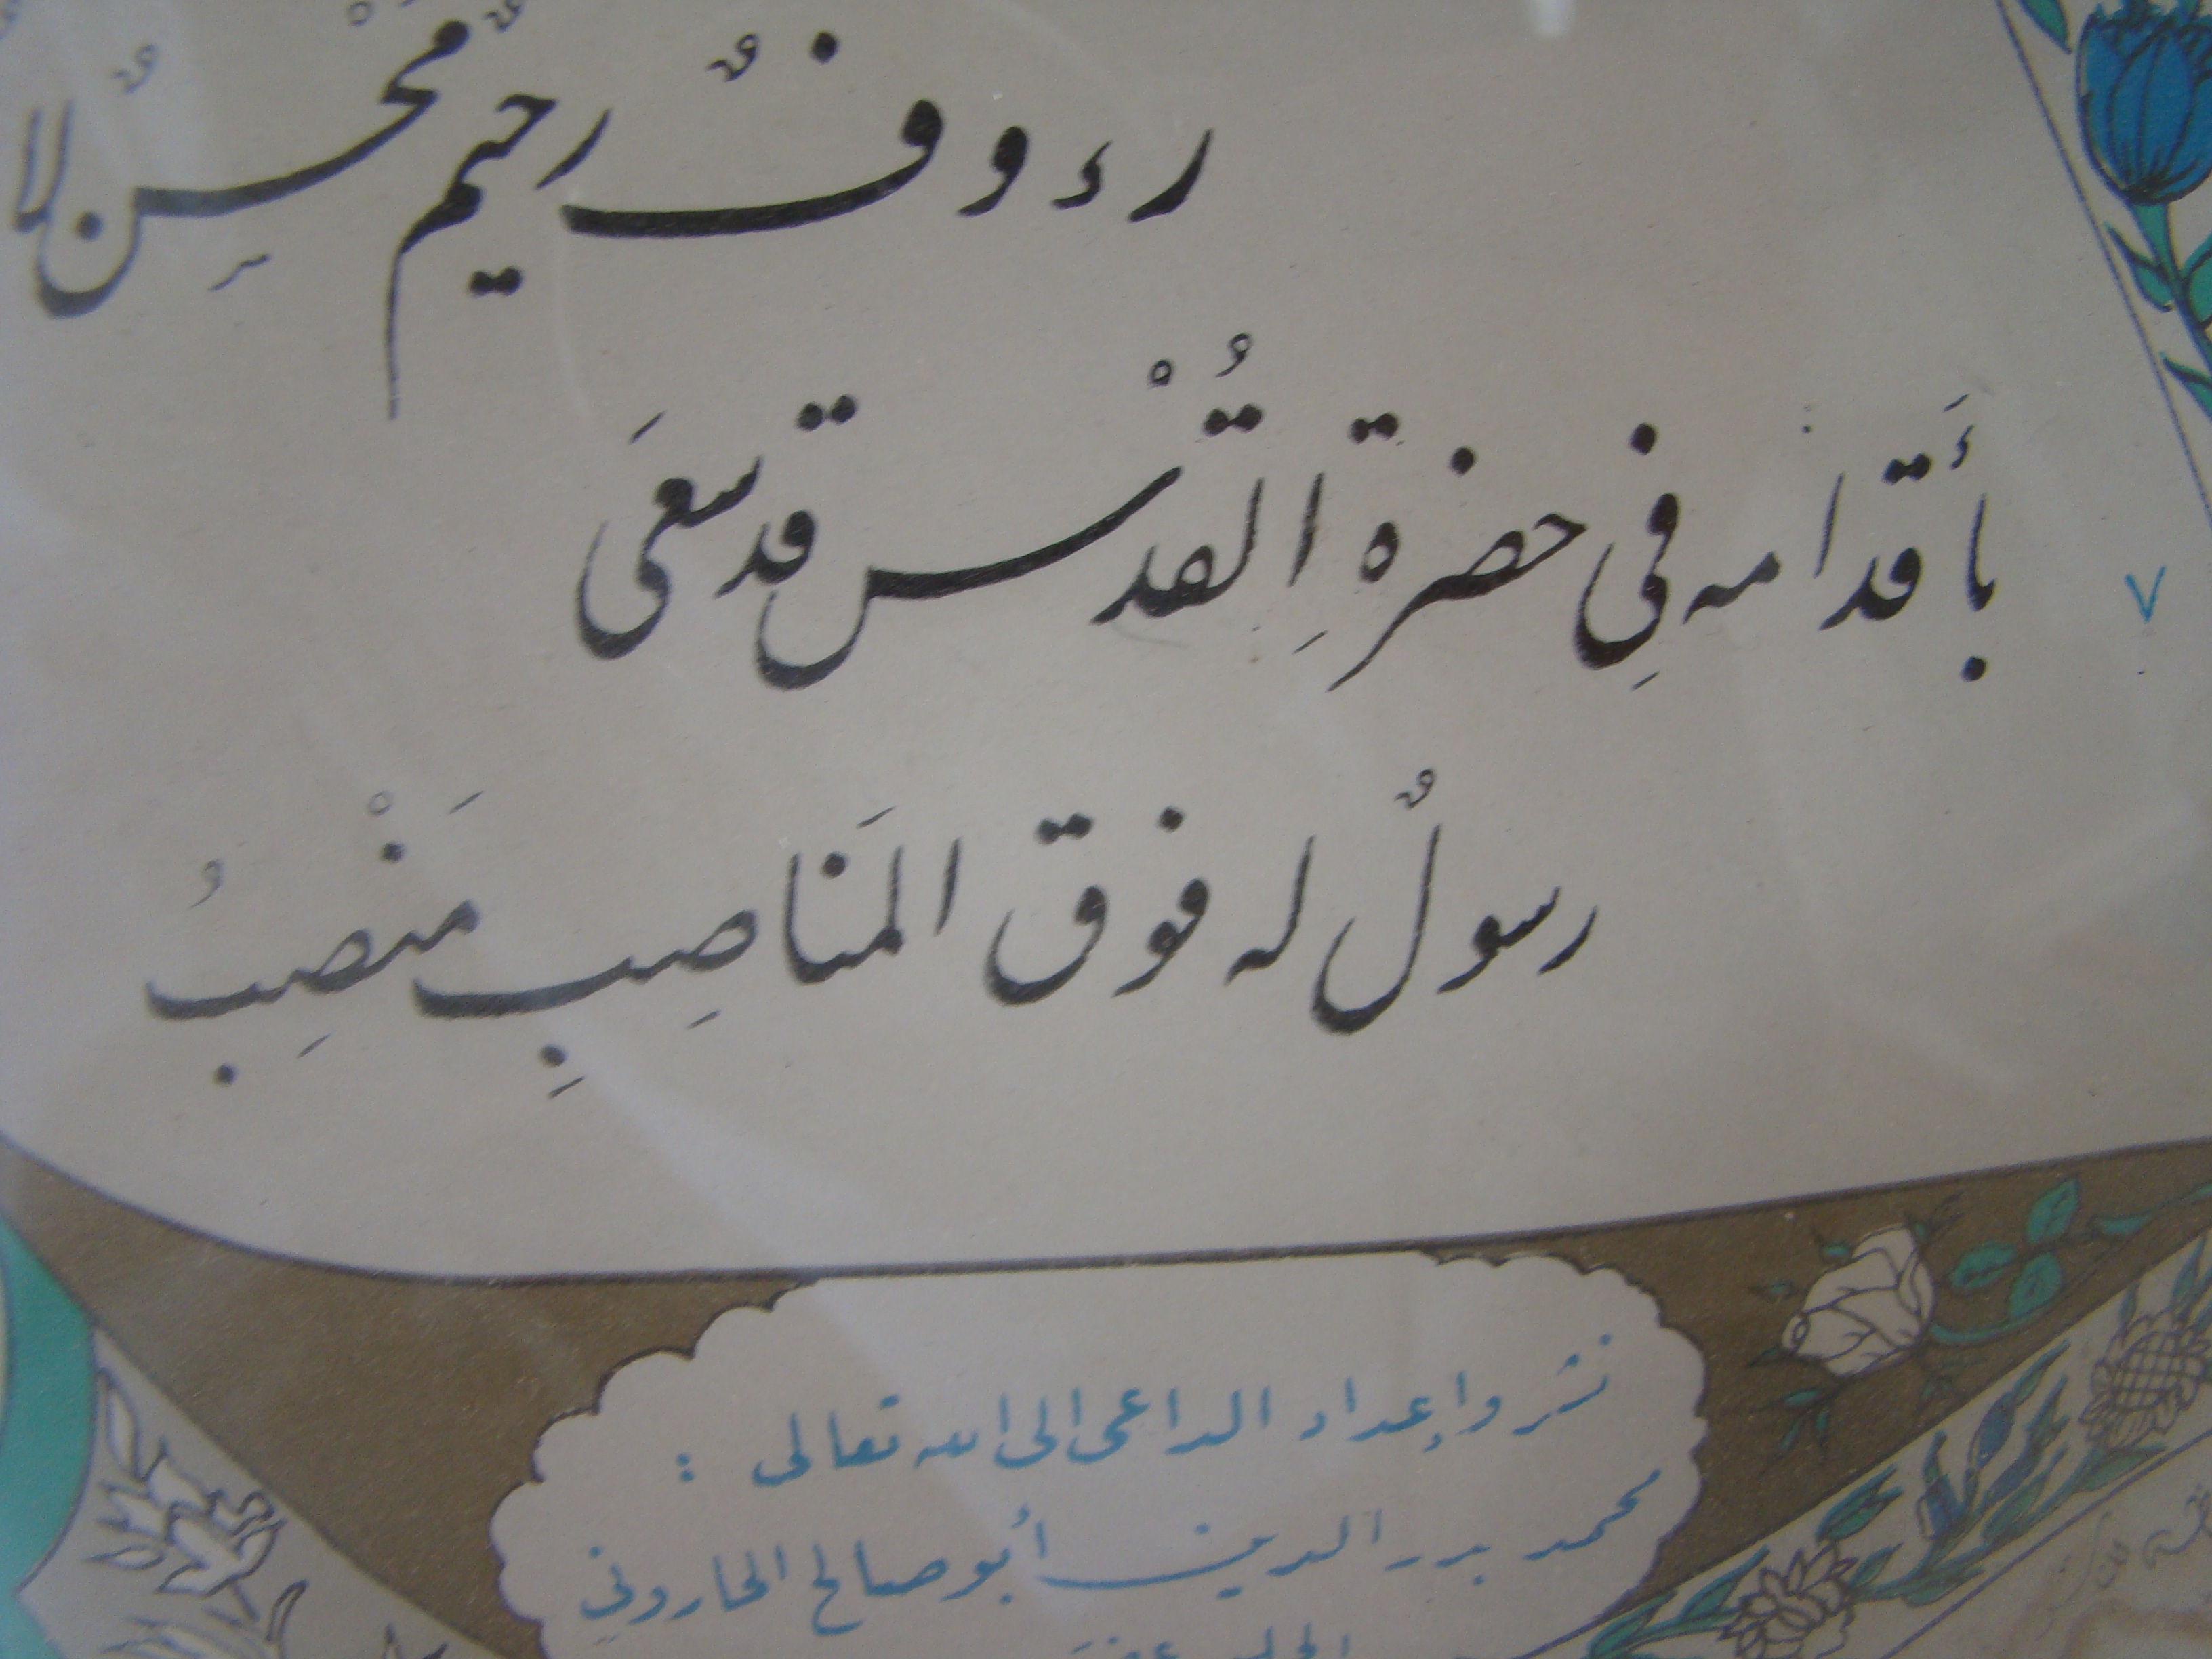 رءوفٌ رحيمٌ مُحْسِنٌ
٧ بأَقدامه في حضرة اِلقُدْس قد سعَى
رسولٌ له فوق المَناصِبِ مَنْصِبُ
نشر وإعداد الداعى الى الله تعالى :
محمد بدر الدين أبو صالح الحاروني